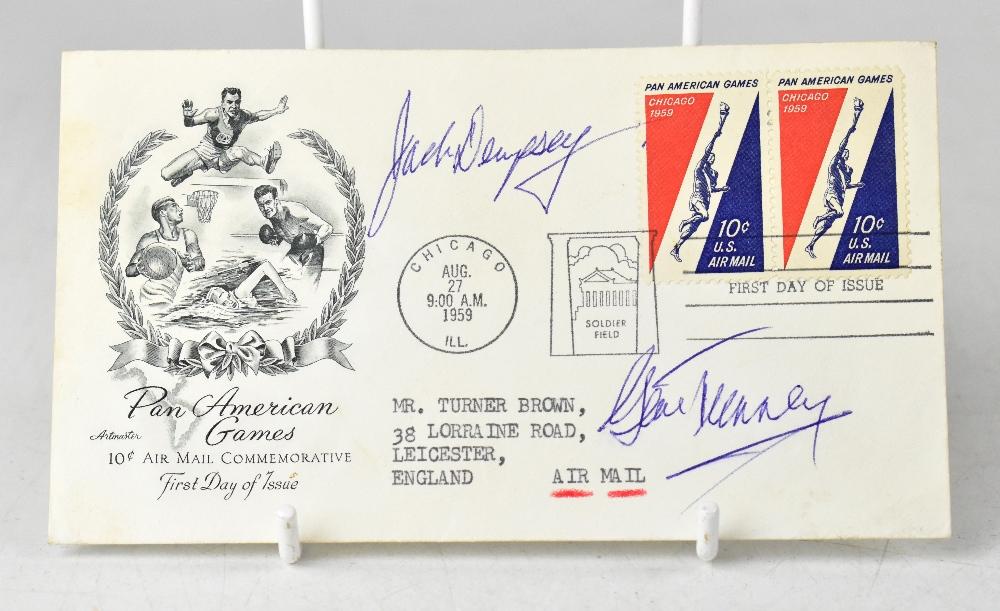 Jack Dempsey
PAN AMERICAN GAMES
CHICAGO
1959
10¢
U.S.
AIR MAIL
PAN AMERICAN GAMES
CHICAGO
1959
10¢
U.S.
AIR MAIL
CHICAGO
AUG.
27
9:00 A.M.
1959
ILL.
SOLDIER
FIELD
FIRST DAY OF ISSUE
Pan American
Games
Artmaster
10¢ AIR MAIL COMMEMORATIVE
First Day of Issue
MR. TURNER BROWN,
38 LORRAINE ROAD,
LEICESTER,
ENGLAND
AIR MAIL
Gene Tunney